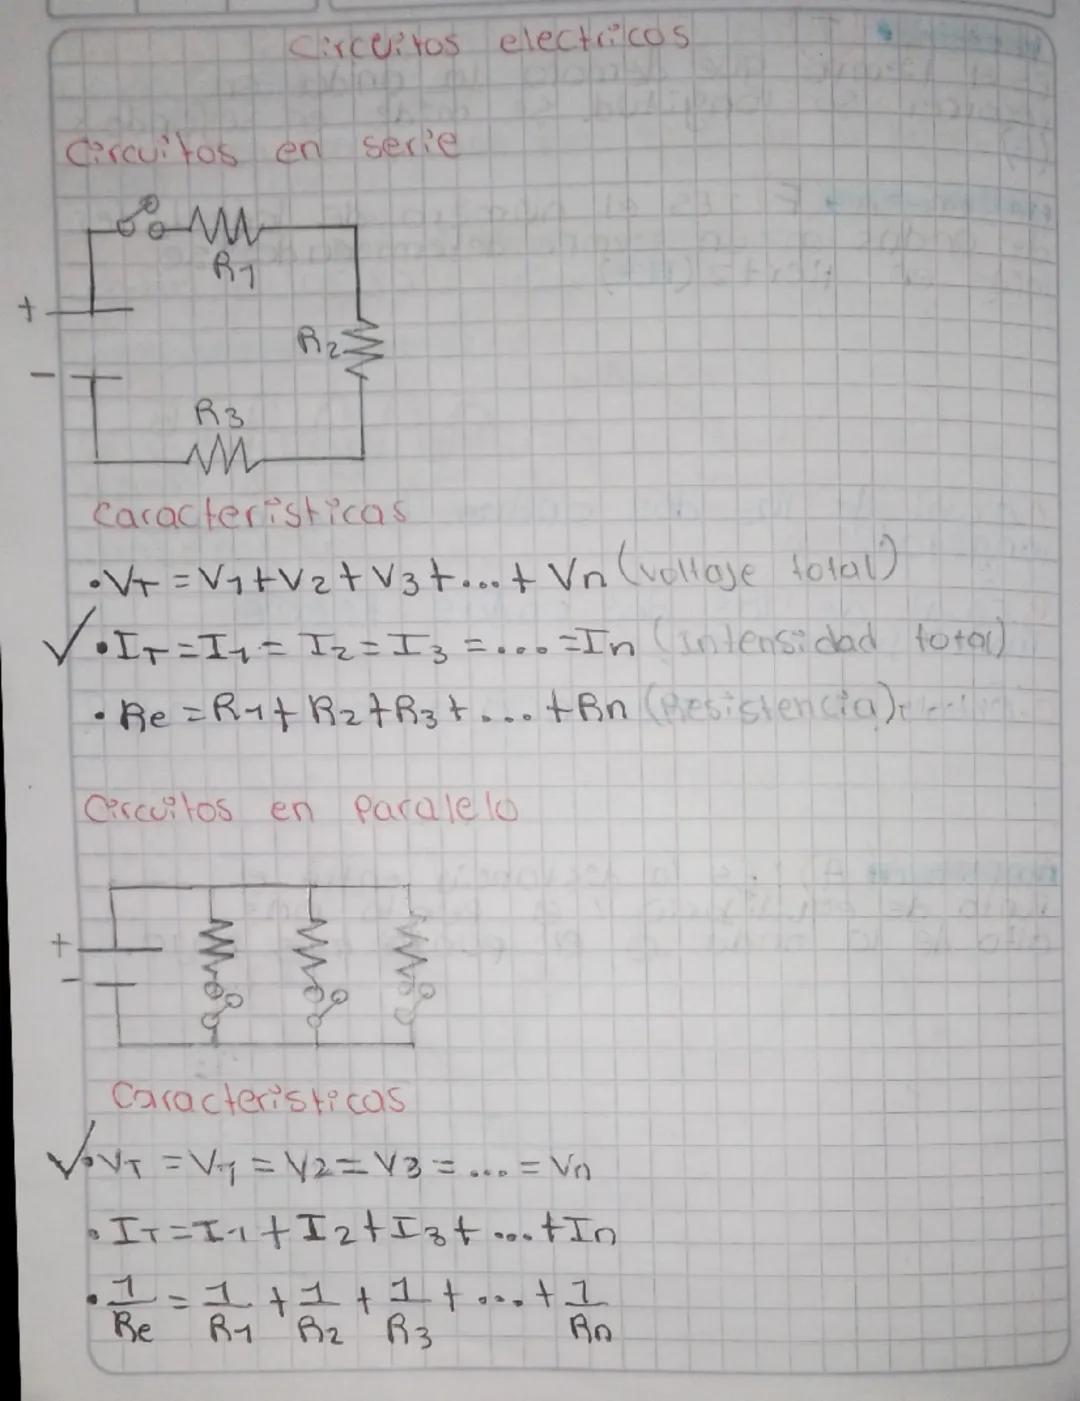 Circuitos electricos
Circuitos en serie
R1
+
R2
-
R3
Caracteristicas
• VT = V1 + V2 + V3 + ... + Vn (voltaje total)
✓ • IT = I1 = I2 = I3 = ... = In (intensidad total)
• Re = R1 + R2 + R3 + ... + Rn (Resistencia)
Circuitos en Paralelo
+
-
Caracteristicas
✓ • VT = V1 = V2 = V3 = ... = Vn
• IT = I1 + I2 + I3 + ... + In
• 1/Re = 1/R1 + 1/R2 + 1/R3 + ... + 1/Rn